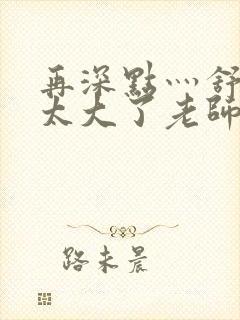 再深點灬舒
太大了老師
路未晨